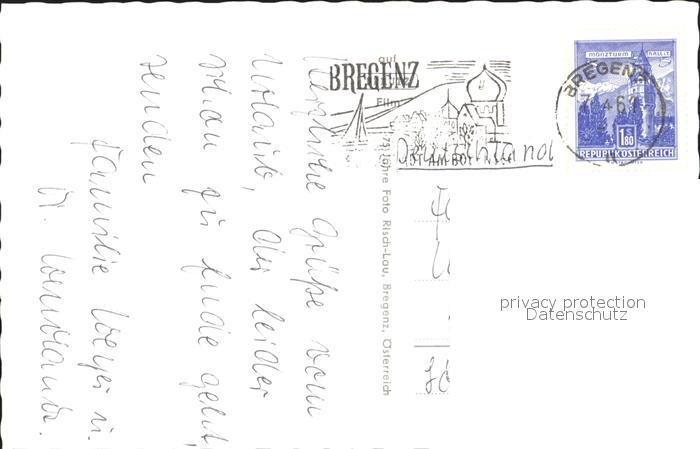 Herzliche Grüße vom
Urlaub, der leider
schon zu Ende geht,
senden
Familie Weyer u.
auf
Film
75 Jahre Foto Risch-Lau, Bregenz, Österreich
BREGENZ
AM BODENSEE
BREGENZ
MÜNZTURM HALL I. T.
S
1.80
REPUBLIK ÖSTERREICH
Deutschland
privacy protection
Datenschutz